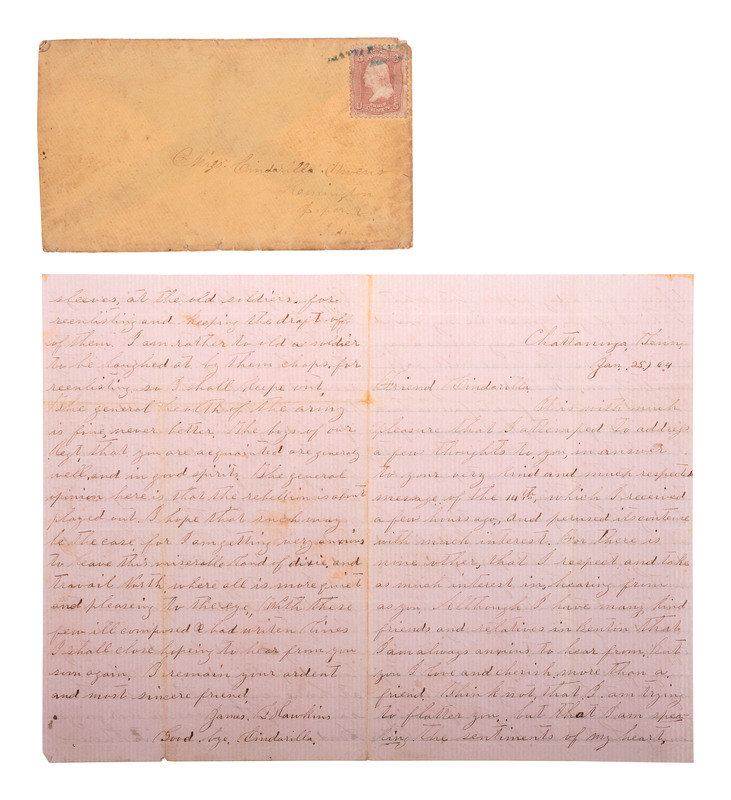 Miss. Cindarilla
Remington
Jasper
Chattanuga Tenn,
Jan. 25/64
Friend Cindarilla.
It is with much
pleasure that I attemped to address
a few thoughts to you, in answer
to your very kind and much respect
mesage of the 14th, which I received
a few hours ago, and perused its contence
with much interest. For there is
none other, that I respect and take
as much interest in, hearing from
as you. Although I have many kind
friends and relatives in Benton that
I am always anxious to hear from, but
you I love and cherish more than a
friend. Think not, that I am trying
to flatter you, but that I am spea-
king the sentiments of my heart,
sleeves, at the old soldiers. for
reenlisting and keeping the draft off
of them. I am rather to old a soldier
to be laughed at by them chaps. for
reenlisting so I shall keepe out,
The general health of the army
is fine, never better. The boys of our
Regt that you are acquainted are generly
well, and in good spirits. The general
opinion here is that the rebellion is about
played out. I hope that such may
be the case for I am getting very anxious
to leave this miserable land of dixie and
travail North, where all is more quiet
and pleasing to the eye, With these
few ill composed & bad writen lines
I shall close hoping to hear from you
soon again. I remain your ardent
and most sincere friend
James. Hawkins
Good bye. Cindarilla.